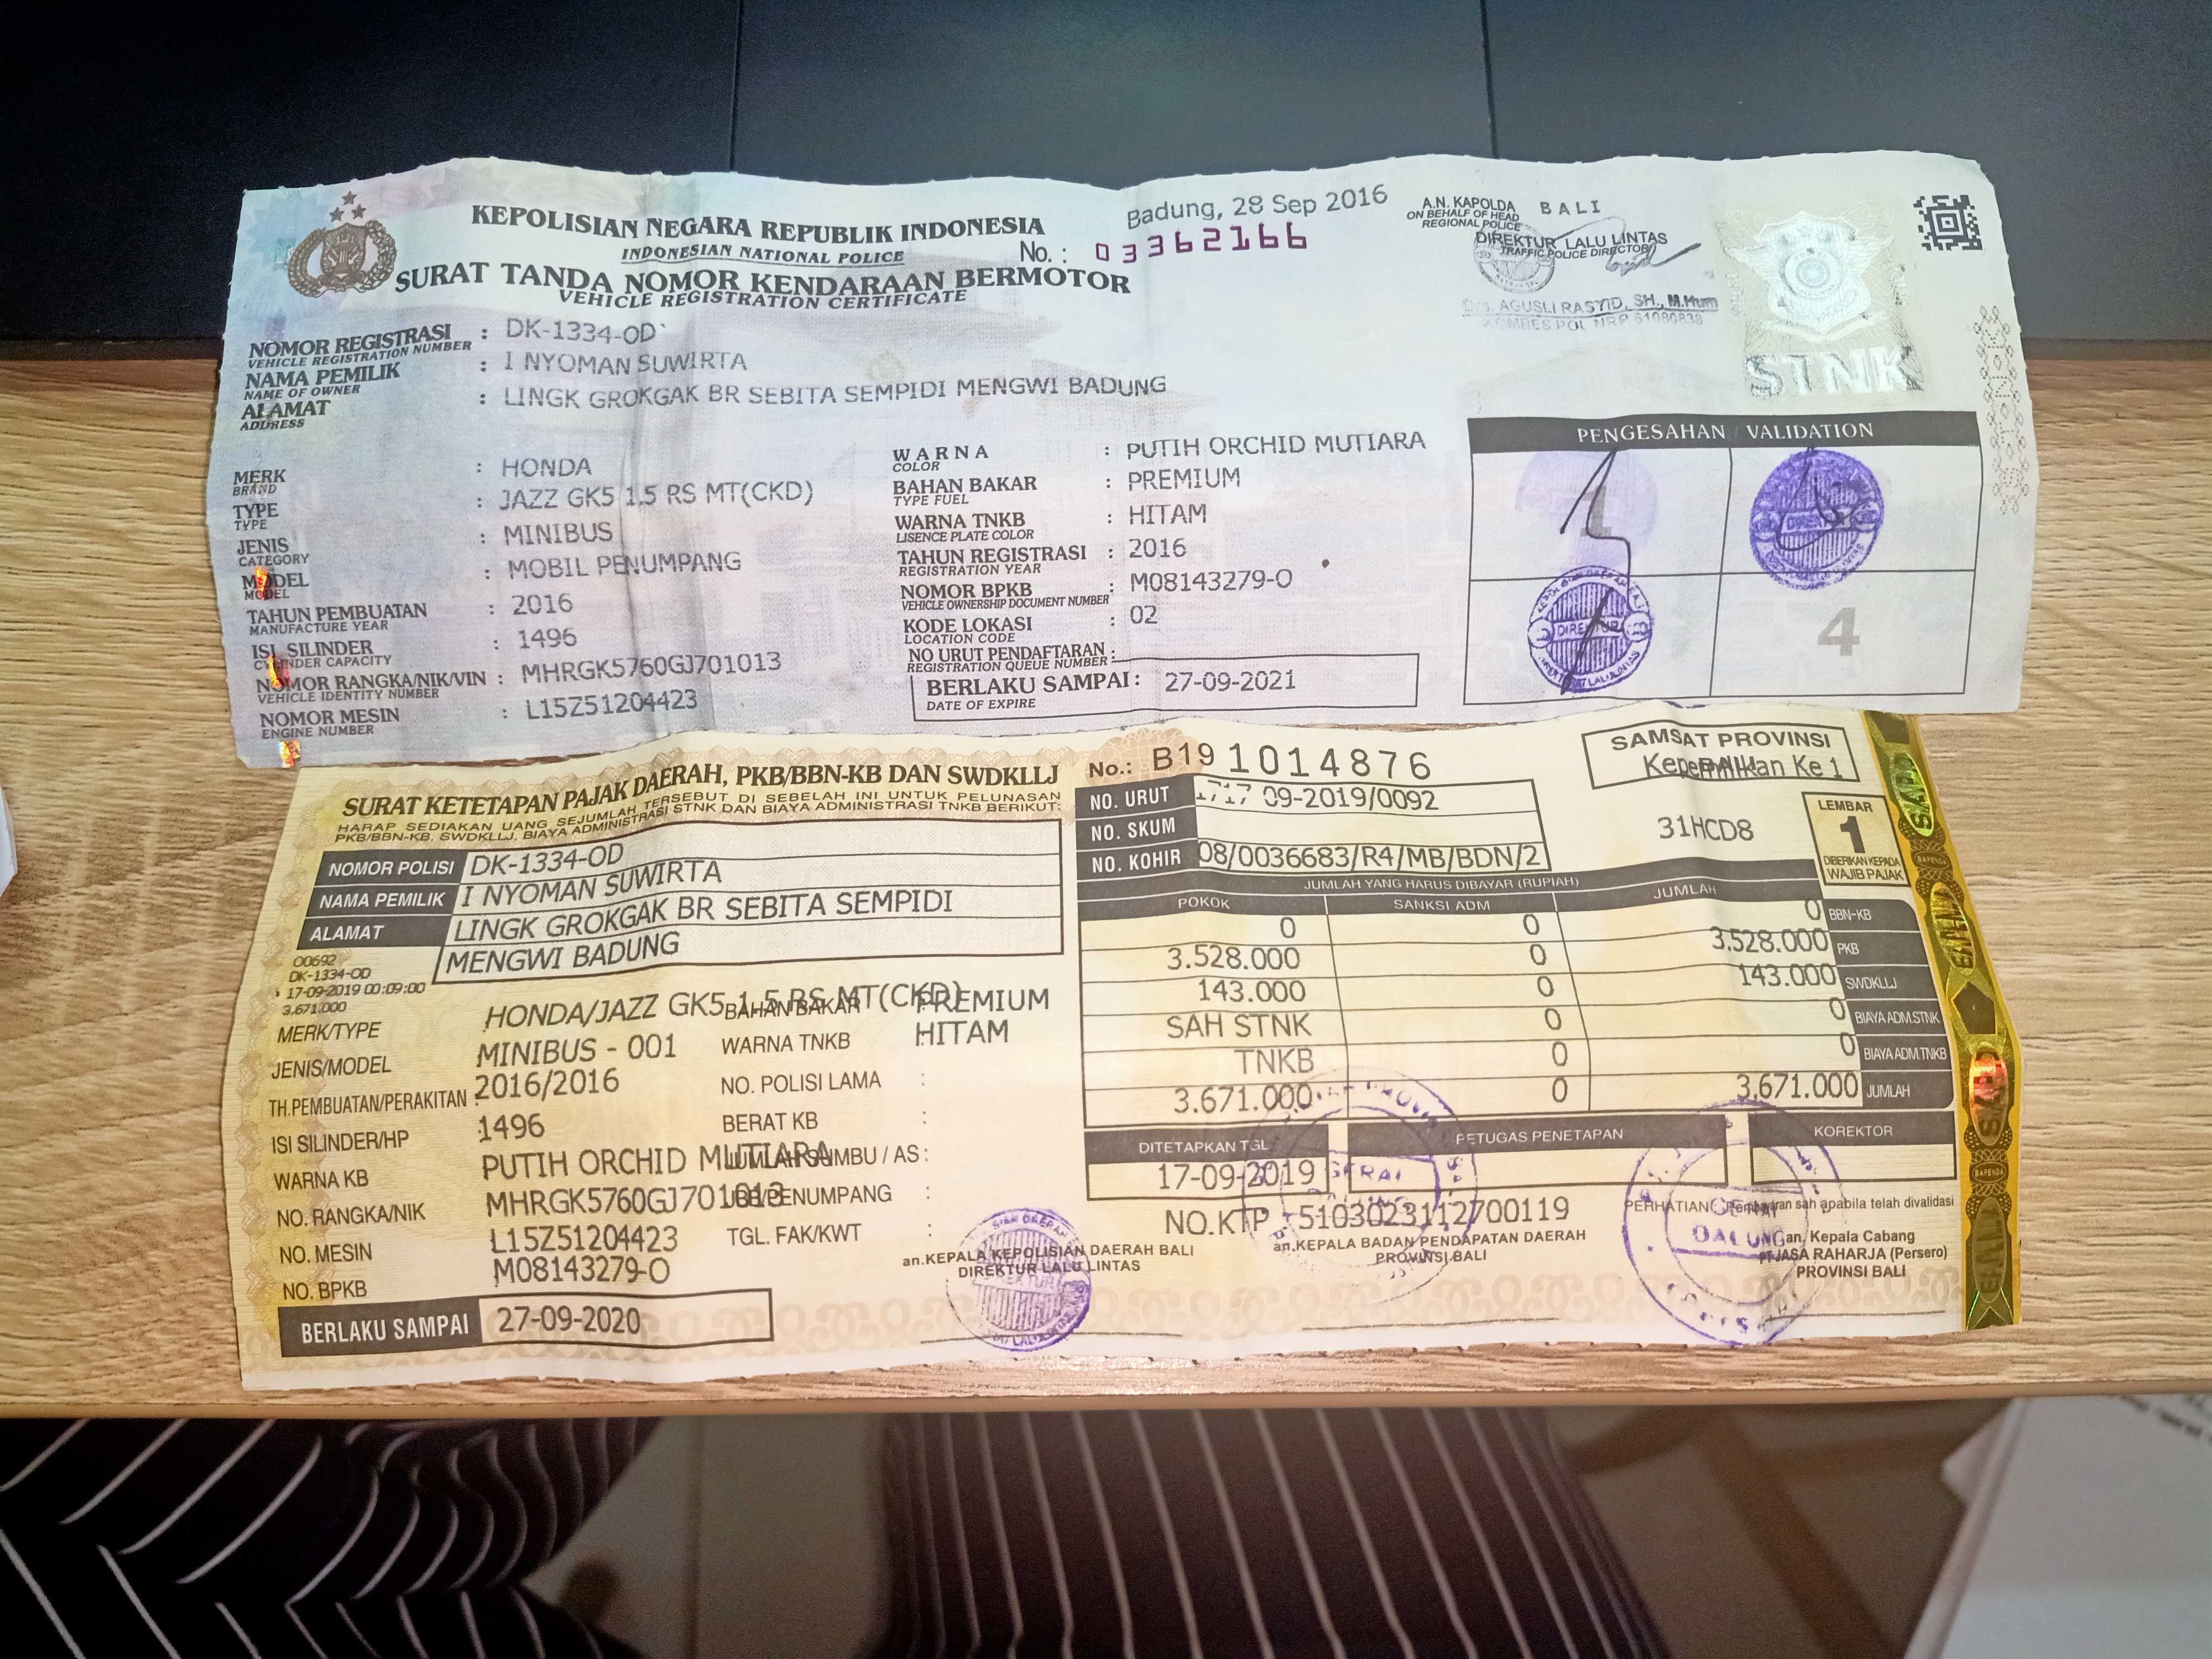 KEPOLISIAN NEGARA REPUBLIK INDONESIA
INDONESIAN NATIONAL POLICE
SURAT TANDA NOMOR KENDARAAN BERMOTOR
VEHICLE REGISTRATION CERTIFICATE
Badung, 28 Sep 2016
No. : 03362166
A.N. KAPOLDA BALI
ON BEHALF OF HEAD
REGIONAL POLICE
DIREKTUR LALU LINTAS
TRAFFIC POLICE DIRECTOR
Drs. AGUSLI RASYID, SH., M.Hum
KOMBES POL NRP 61080838
STNK
NOMOR REGISTRASI : DK-1334-OD
VEHICLE REGISTRATION NUMBER
NAMA PEMILIK : I NYOMAN SUWIRTA
NAME OF OWNER
ALAMAT : LINGK GROKGAK BR SEBITA SEMPIDI MENGWI BADUNG
ADDRESS
MERK : HONDA
BRAND
TYPE : JAZZ GK5 1.5 RS MT(CKD)
TYPE
JENIS : MINIBUS
CATEGORY
MODEL : MOBIL PENUMPANG
MODEL
TAHUN PEMBUATAN : 2016
MANUFACTURE YEAR
ISI SILINDER : 1496
CYLINDER CAPACITY
NOMOR RANGKA/NIK/VIN : MHRGK5760GJ701013
VEHICLE IDENTITY NUMBER
NOMOR MESIN : L15Z51204423
ENGINE NUMBER
WARNA : PUTIH ORCHID MUTIARA
COLOR
BAHAN BAKAR : PREMIUM
TYPE FUEL
WARNA TNKB : HITAM
LISENCE PLATE COLOR
TAHUN REGISTRASI : 2016
REGISTRATION YEAR
NOMOR BPKB : M08143279-O
VEHICLE OWNERSHIP DOCUMENT NUMBER
KODE LOKASI : 02
LOCATION CODE
NO URUT PENDAFTARAN :
REGISTRATION QUEUE NUMBER
BERLAKU SAMPAI : 27-09-2021
DATE OF EXPIRE
PENGESAHAN / VALIDATION
1
4
SURAT KETETAPAN PAJAK DAERAH, PKB/BBN-KB DAN SWDKLLJ
HARAP SEDIAKAN UANG SEJUMLAH TERSEBUT DI SEBELAH INI UNTUK PELUNASAN
PKB/BBN-KB, SWDKLLJ, BIAYA ADMINISTRASI STNK DAN BIAYA ADMINISTRASI TNKB BERIKUT:
NOMOR POLISI DK-1334-OD
NAMA PEMILIK I NYOMAN SUWIRTA
ALAMAT LINGK GROKGAK BR SEBITA SEMPIDI
MENGWI BADUNG
00692
DK-1334-OD
17-09-2019 00:09:00
3.671.000
MERK/TYPE HONDA/JAZZ GK5 1.5 RS MT(CKD)
BAHAN BAKAR PREMIUM
JENIS/MODEL MINIBUS - 001
WARNA TNKB HITAM
TH.PEMBUATAN/PERAKITAN : 2016/2016
NO. POLISI LAMA :
ISI SILINDER/HP 1496
BERAT KB :
WARNA KB PUTIH ORCHID MUTIARA
SUMBU / AS :
NO. RANGKA/NIK MHRGK5760GJ701013
PENUMPANG :
NO. MESIN L15Z51204423
TGL. FAK/KWT :
NO. BPKB M08143279-O
BERLAKU SAMPAI 27-09-2020
an.KEPALA KEPOLISIAN DAERAH BALI
DIREKTUR LALU LINTAS
No.: B19 1014876
NO. URUT 09-2019/0092
NO. SKUM
NO. KOHIR 08/0036683/R4/MB/BDN/2
SAMSAT PROVINSI
BALI
Kepemilikan Ke 1
31HCD8
LEMBAR
1
DIBERIKAN KEPADA
WAJIB PAJAK
JUMLAH YANG HARUS DIBAYAR (RUPIAH)
POKOK SANKSI ADM JUMLAH
0 0 0 BBN-KB
3.528.000 0 3.528.000 PKB
143.000 0 143.000 SWDKLLJ
SAH STNK 0 0 BIAYA ADM.STNK
TNKB 0 0 BIAYA ADM.TNKB
3.671.000 0 3.671.000 JUMLAH
DITETAPKAN TGL PETUGAS PENETAPAN KOREKTOR
17-09-2019
NO.KTP : 5103023112700119
PERHATIAN : Pembayaran sah apabila telah divalidasi
an.KEPALA BADAN PENDAPATAN DAERAH
PROVINSI BALI
an. Kepala Cabang
PT.JASA RAHARJA (Persero)
PROVINSI BALI
GERAI
DALUNG